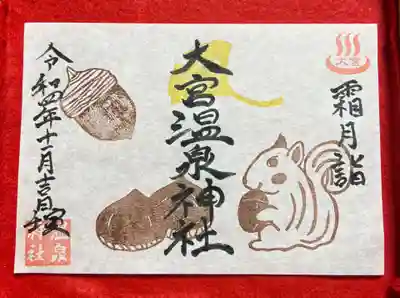 大宮
霜月詣
大宮温泉神社
令和四年十一月吉日
温泉神社